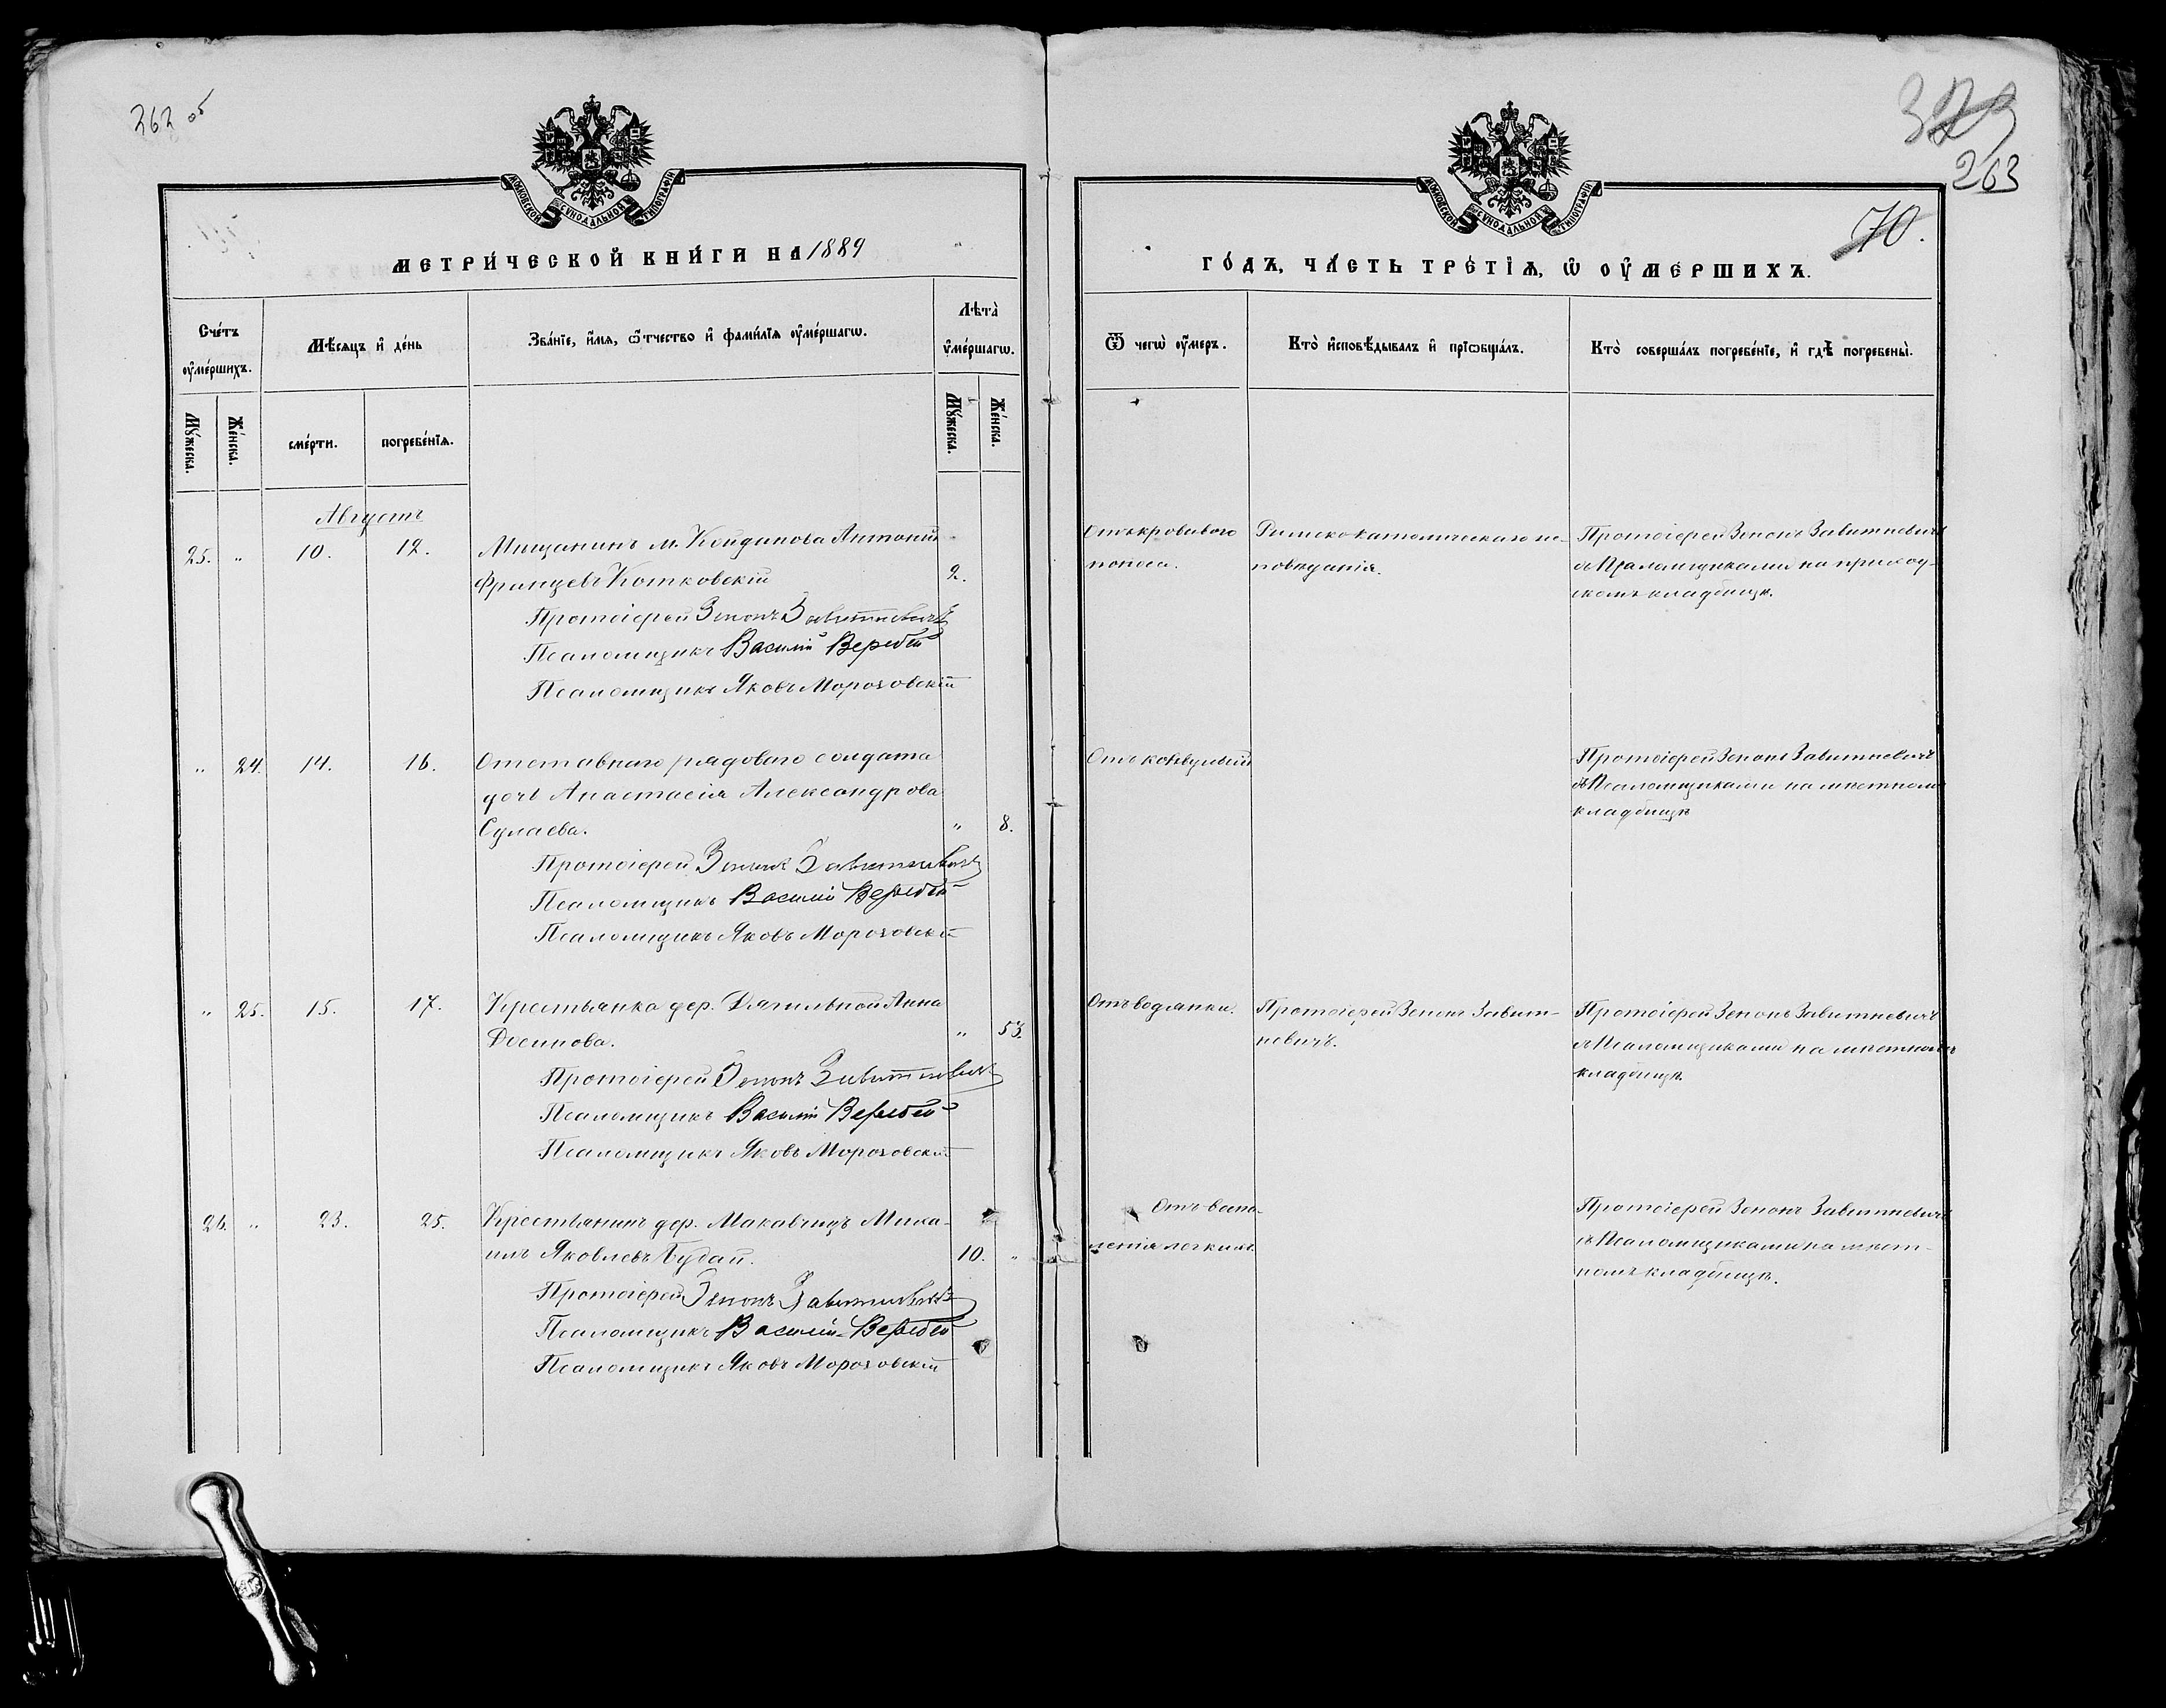 262 об
329
263
70.
МОСКОВСКОЙ СѴНОДАЛЬНОЙ ТИПОГРАФІИ
МЕТРИ́ЧЕСКОЙ КНИ́ГИ НА 1889
Сче́тъ ᲂу҆ме́ршихъ.
Мѣ́сяцъ и҆ де́нь
Зва́нїе, и҆́мя, ѻ҆́тчество и҆ фами́лїя ᲂу҆ме́ршагѡ.
Лѣта̀ ᲂу҆ме́ршагѡ.
Мꙋ́жеска.
Же́нска.
сме́рти.
погребе́нїѧ.
Мꙋ́жеска.
Же́нска.
Августъ
25. " 10. 12. Мѣщанинъ м. Койданова Антоній
Францевъ Котковскій 2.
Протоіерей Зенонъ Завитневичъ
Псаломщикъ Василій Веребей
Псаломщикъ Яковъ Морозовскій
" 24. 14. 16. Отставнаго рядоваго солдата
дочь Анастасія Александрова
Сулаева. " 8.
Протоіерей Зенонъ Завитневичъ
Псаломщикъ Василій Веребей
Псаломщикъ Яковъ Морозовскій
" 25. 15. 17. Крестьянка дер. Дягильной Анна
Осипова. " 53.
Протоіерей Зенонъ Завитневичъ
Псаломщикъ Василій Веребей
Псаломщикъ Яковъ Морозовскій
26. " 23. 25. Крестьянинъ дер. Макавчицъ Миха-
илъ Яковлевъ Будай. 10. "
Протоіерей Зенонъ Завитневичъ
Псаломщикъ Василій Веребей
Псаломщикъ Яковъ Морозовскій
МОСКОВСКОЙ СѴНОДАЛЬНОЙ ТИПОГРАФІИ
ГО́ДЪ, ЧА́СТЬ ТРЕ́ТЇѦ, Ѡ҆ ОУ҆МЕ́РШИХЪ.
Ѿ чегѡ̀ ᲂу҆́меръ.
Кто̀ и҆сповѣ́дывалъ и҆ прїѡбща́лъ.
Кто̀ соверша́лъ погребе́нїе, и҆ гдѣ̀ погребены̀.
Отъ кроваваго
поноса.
Римско-католическаго ис-
повѣданія.
Протоіерей Зенонъ Завитневичъ
съ Псаломщиками на приход-
скомъ кладбищѣ.
Отъ конвульсій
Протоіерей Зенонъ Завитневичъ
съ Псаломщиками на мѣстномъ
кладбищѣ
Отъ водянки.
Протоіерей Зенонъ Завит-
невичъ.
Протоіерей Зенонъ Завитневичъ
съ Псаломщиками на мѣстномъ
кладбищѣ.
Отъ воспа-
ленія легкихъ.
Протоіерей Зенонъ Завитневичъ
съ Псаломщиками на мѣст-
номъ кладбищѣ.